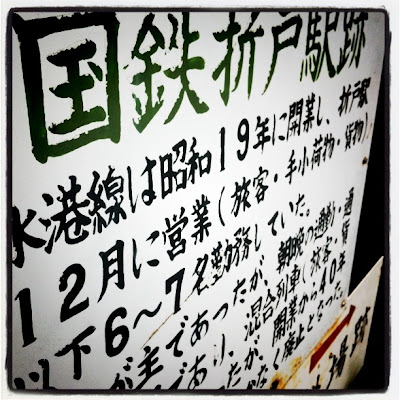 国鉄折戸駅跡
水港線は昭和19年に開業し、折戸駅
12月に営業(旅客・手小荷物・貨物)
以下6〜7名勤務していた。
が主であったが、朝晩の通勤・通
であり、混合列車(旅客・貨
たが、開業から40年
なく廃止となった。
場跡